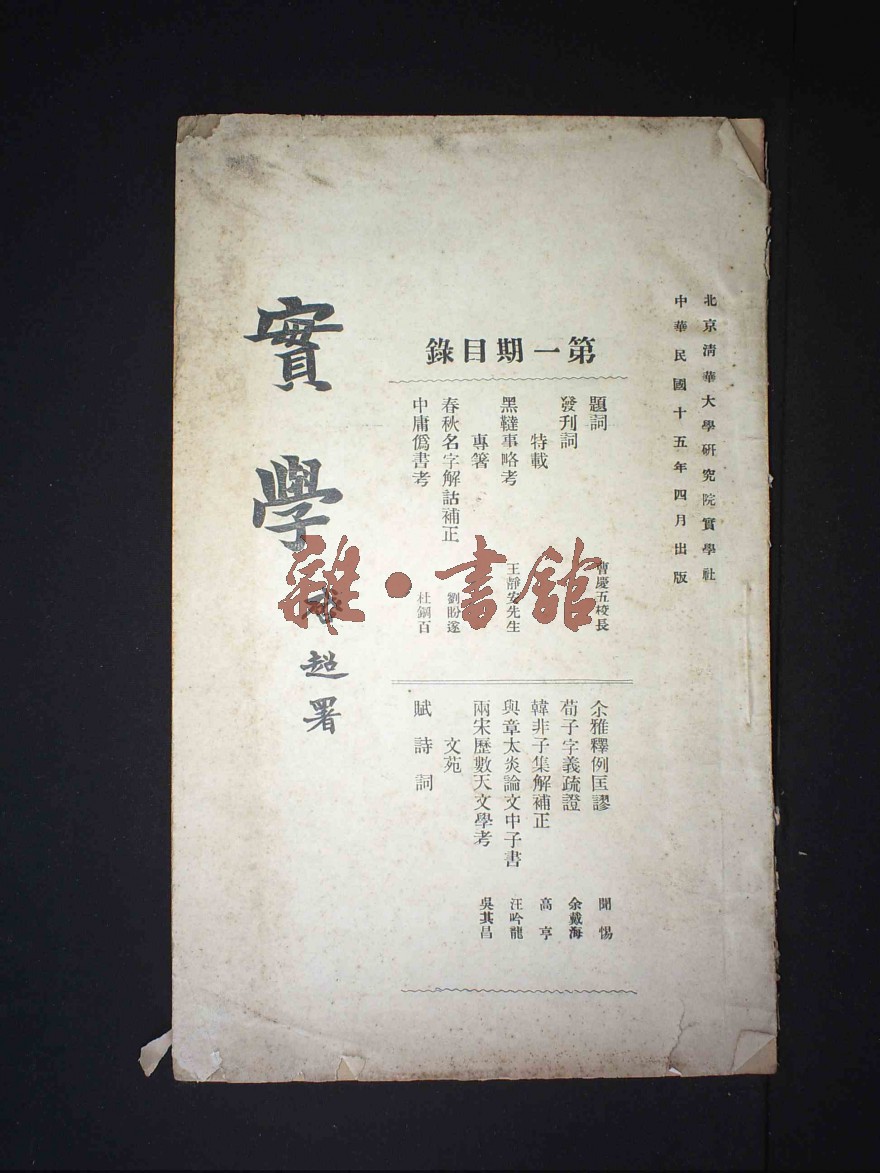 北京清華大學研究院實學社
中華民國十五年四月出版
第一期目錄
題詞 曹慶五校長
發刊詞
特載
黑韃事略考 王靜安先生
專箸
春秋名字解詁補正 劉盼遂
中庸僞書考 杜鋼百
尒雅釋例匡謬 聞惕
荀子字義疏證 余戴海
韓非子集解補正 高亨
與章太炎論文中子書 汪吟龍
兩宋歷數天文學考 吳其昌
文苑
賦詩詞
實學
超署
雜·書館